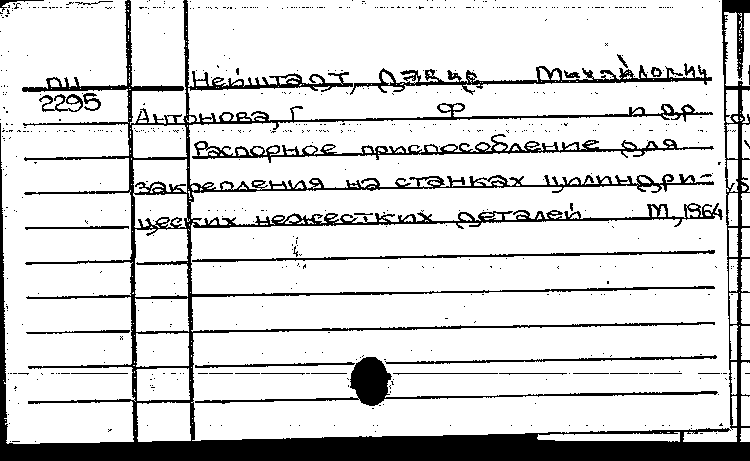 ПИ Нейштадт, Давид Михайлович
2295
Антонова, Г Ф и др
Распорное приспособление для
закрепления на станках цилиндри-
ческих нежестких деталей М, 1964